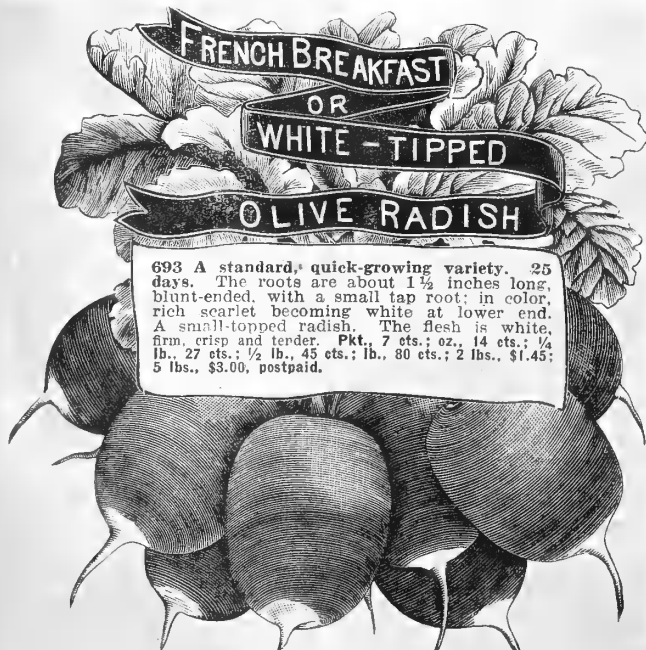 FRENCH BREAKFAST
OR
WHITE-TIPPED
OLIVE RADISH
693 A standard, quick-growing variety. 25
days. The roots are about 1½ inches long,
blunt-ended, with a small tap root; in color,
rich scarlet becoming white at lower end.
A small-topped radish. The flesh is white,
firm, crisp and tender. Pkt., 7 cts.; oz., 14 cts.; ¼
lb., 27 cts.; ½ lb., 45 cts.; lb., 80 cts.; 2 lbs., $1.45;
5 lbs., $3.00, postpaid.